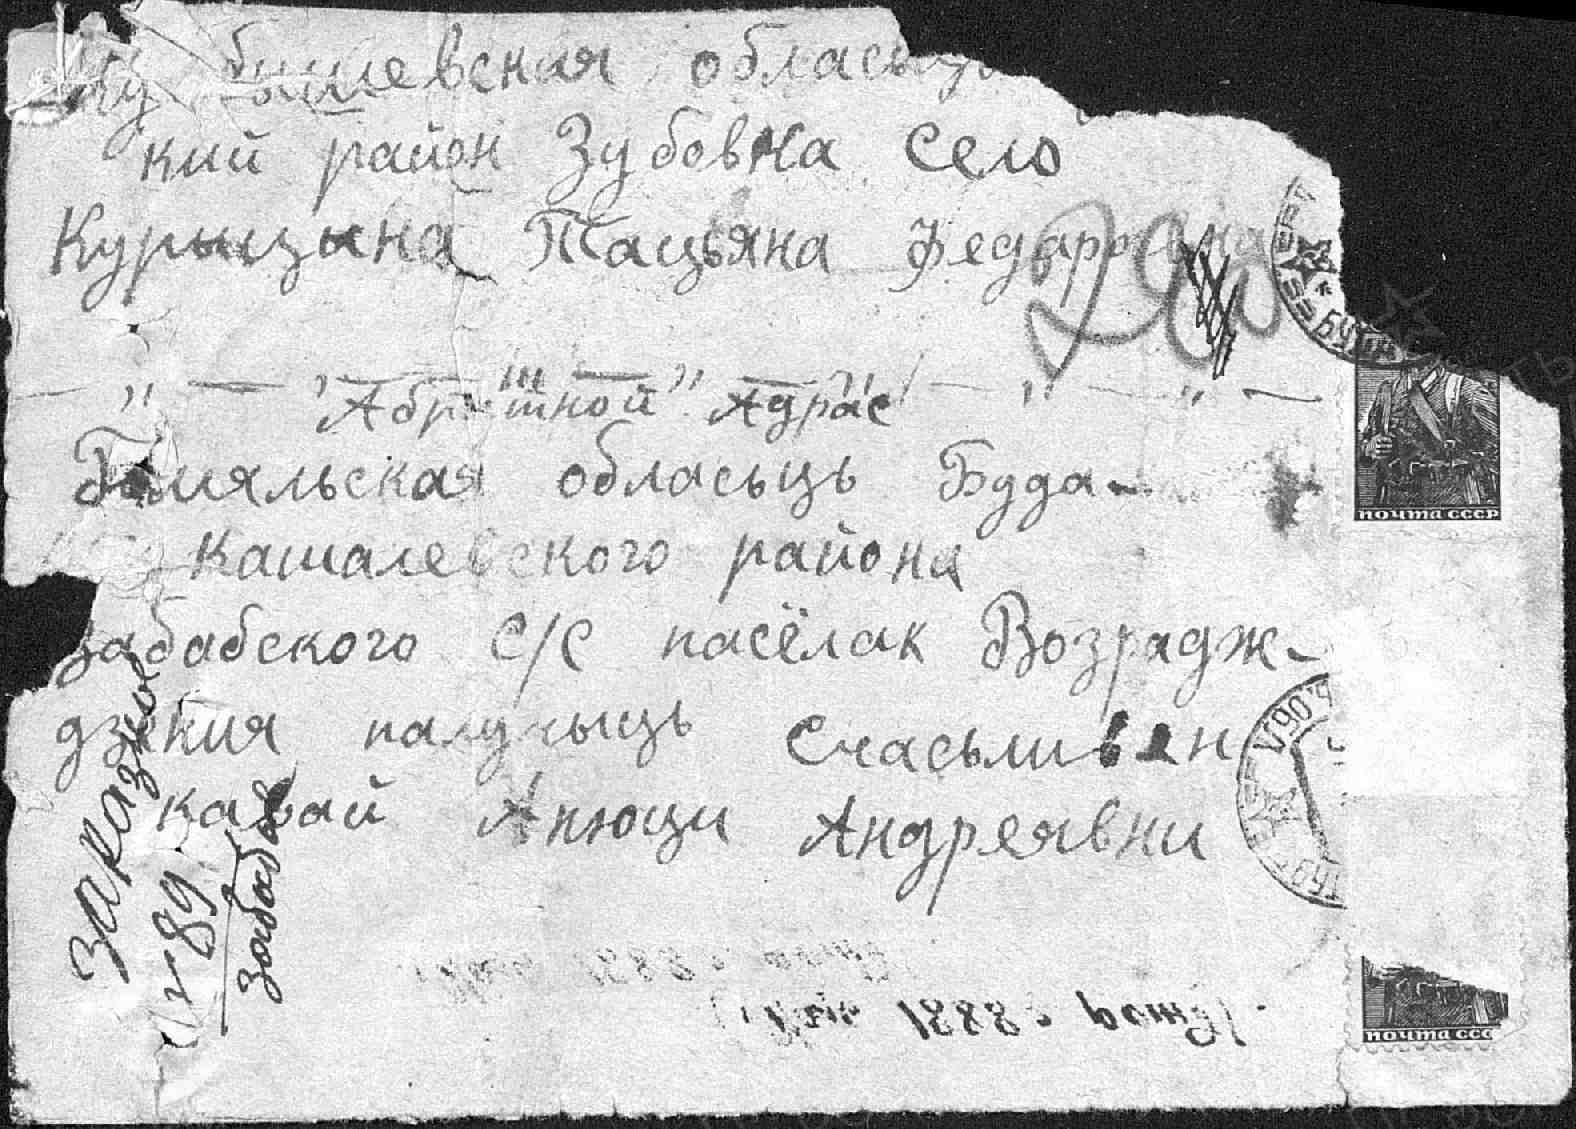 бышевския обласьць
кий район Зубовка село
Курыцына Тацьяна Федаровна
20
"Абратной" Адрас
Гомяльская обласьць Буда-
кашалевского района
забабского С/С пасёлак Возрадж-
дзения палучыць Счасьливен
кавай Анюци Андреявни
заказное
N 89
забабье
1888 г.
ПОЧТА СССР
ПОЧТА ССС